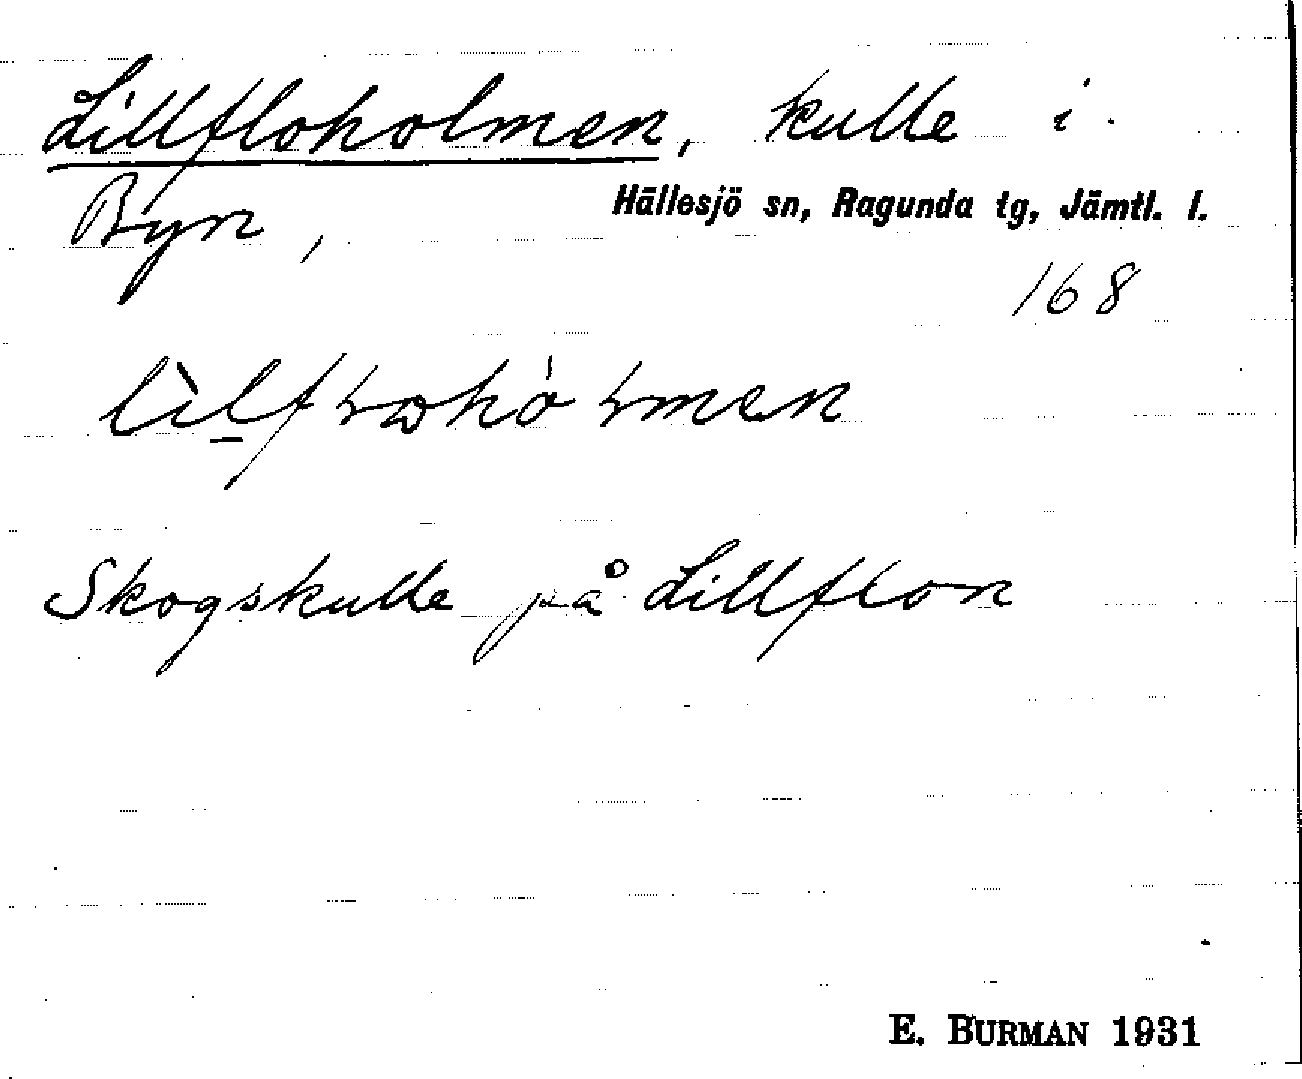 Lillfloholmen, kulle i
Byn,
Hällesjö sn, Ragunda tg, Jämtl. l.
168
Skogskulle på Lillflon
E. BURMAN 1931